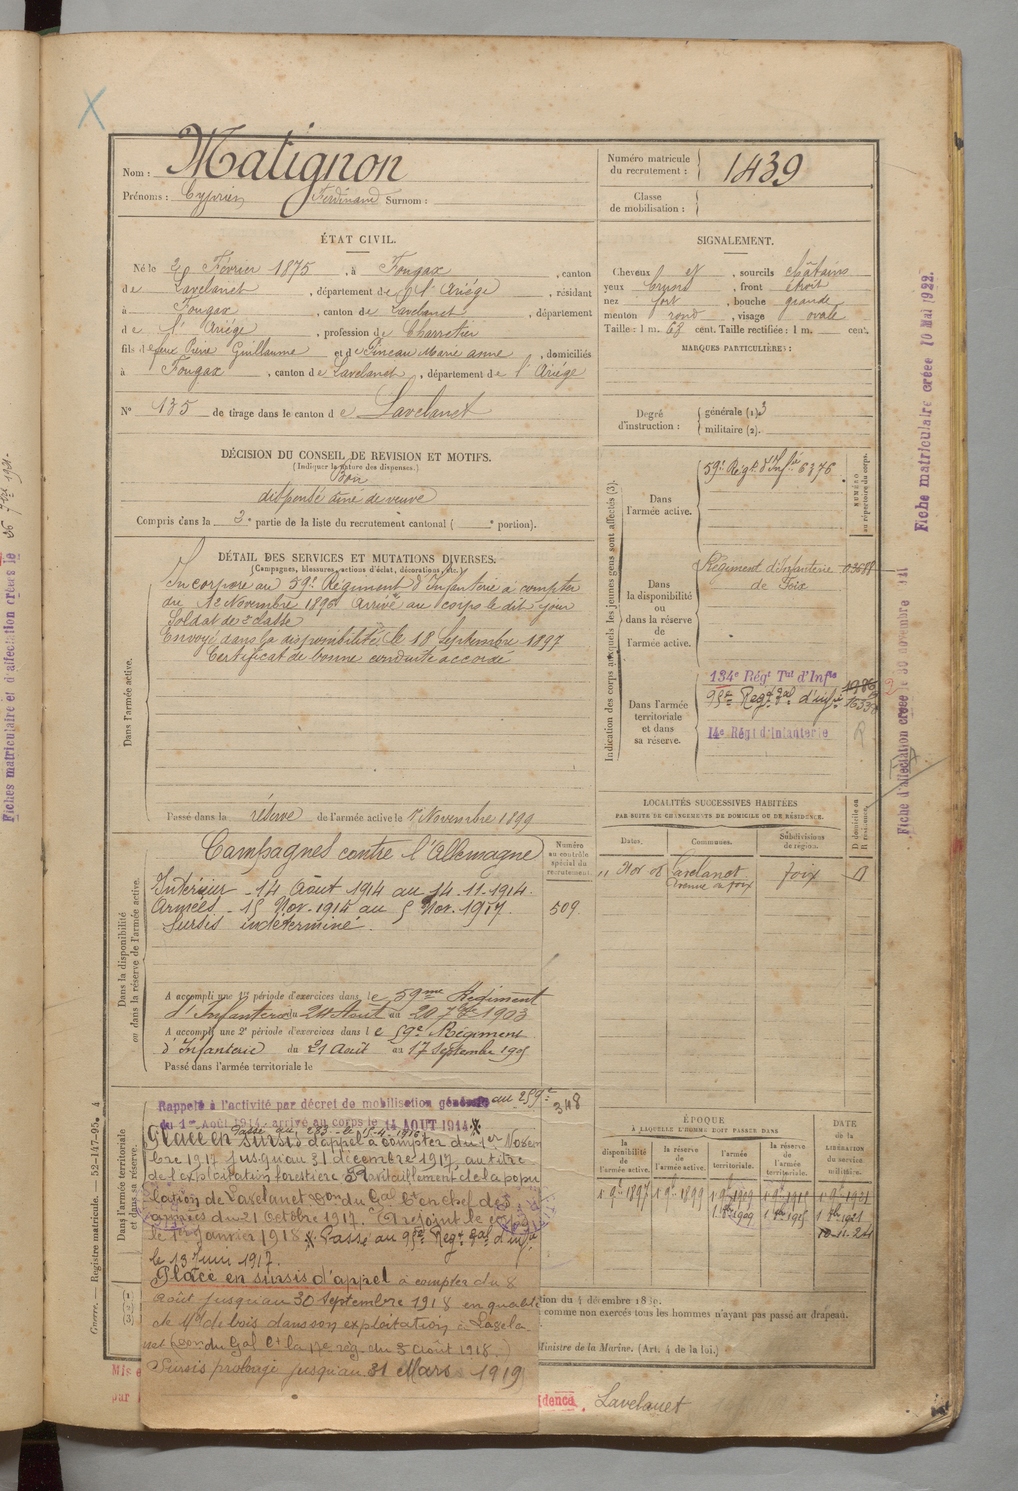 Nom : Matignon
Prénoms : Cyprien Ferdinand Surnom :
Numéro matricule du recrutement : 1439
Classe de mobilisation :
ÉTAT CIVIL.
Né le 2 Février 1875, à Fougax, canton
de Lavelanet, département de l'Ariége, résidant
à Fougax, canton de Lavelanet, département
de l'Ariége, profession de Charretier
fils de feu Pierre Guillaume et de Pineau Marie anne, domiciliés
à Fougax, canton de Lavelanet, département de l'Ariége
N° 135 de tirage dans le canton de Lavelanet
SIGNALEMENT.
Cheveux et, sourcils châtains
yeux bruns, front étroit
nez fort, bouche grande
menton rond, visage ovale
Taille : 1 m. 63 cent. Taille rectifiée : 1 m. cent.
MARQUES PARTICULIÈRES :
Degré d'instruction : générale (1). 3
militaire (2).
DÉCISION DU CONSEIL DE REVISION ET MOTIFS.
(Indiquer la nature des dispenses.)
Bon
dispensé aîné de veuve
Compris dans la 3e partie de la liste du recrutement cantonal ( e portion).
DÉTAIL DES SERVICES ET MUTATIONS DIVERSES.
(Campagnes, blessures, actions d'éclat, décorations, etc.)
Dans l'armée active.
Incorporé au 59e Régiment d'Infanterie à compter
du Novembre 1896 Arrivé au corps le dit jour
Soldat de 2e classe
Envoyé dans la disponibilité le 18 Septembre 1897
Certificat de bonne conduite accordé
Passé dans la réserve de l'armée active le 1 Novembre 1899
Indication des corps auxquels les jeunes gens sont affectés (3).
NUMÉRO au répertoire du corps.
Dans l'armée active.
59e Régt d'Infie 6376
Dans la disponibilité ou dans la réserve de l'armée active.
Régiment d'Infanterie
de Foix
Dans l'armée territoriale et dans sa réserve.
134e Régt Tal d'Infie
95e Regt Tal d'infie
14e Régt d'Infanterie
LOCALITÉS SUCCESSIVES HABITÉES
PAR SUITE DE CHANGEMENTS DE DOMICILE OU DE RÉSIDENCE.
Dates. Communes. Subdivisions de région. D domicile ou R résidence.
11 Nov 08 Lavelanet Foix D
Dans la disponibilité ou dans la réserve de l'armée active.
Campagnes contre l'Allemagne
Numéro au contrôle spécial du recrutement.
Intérieur - 14 Août 1914 au 14-11-1914.
Armées - 15 Nov. 1914 au 5 Nov. 1917. 509
Sursis indéterminé.
A accompli une 1re période d'exercices dans le 59me Régiment
d'Infanterie du 24 Août au 20 7bre 1903
A accompli une 2e période d'exercices dans le 59e Régiment
d'Infanterie du 21 Août au 17 Septembre 1905
Passé dans l'armée territoriale le
Dans l'armée territoriale et dans sa réserve.
Rappelé à l'activité par décret de mobilisation générale au 259e 348
du 1er Août 1914 - arrivé au corps le 14 AOUT 1914
Passé au 283e le 15-4-1916
Placé en sursis d'appel à compter du 1er Novem
bre 1917 jusqu'au 31 décembre 1917, au titre
de l'exploitation forestière Ravitaillement de la popu
lation de Lavelanet don du Gal Ct en chef des
armées du 21 octobre 1917. A rejoint le
le 1er Janvier 1918 Passé au 95e Regt Tal d'infie
le 13 Juin 1917.
Placé en sursis d'appel à compter du 8
août jusqu'au 30 septembre 1918 en qualité
de Md de bois dans son exploitation à Lavela
net (don du Gal Ct la 17e rég. du 5 août 1918.)
Sursis prolongé jusqu'au 31 Mars 1919
ÉPOQUE
À LAQUELLE L'HOMME DOIT PASSER DANS
la disponibilité de l'armée active. la réserve de l'armée active. l'armée territoriale. la réserve de l'armée territoriale. DATE de la LIBÉRATION du service militaire.
1 9e 1897 1 9e 1899 1 9e 1909 1 9e 1915 1 9e 1921
1 8bre 1909 1 8bre 1915 1 8bre 1921
10-11-24
tion du 4 décembre 1889.
comme non exercés tous les hommes n'ayant pas passé au drapeau.
Ministre de la Marine. (Art. 4 de la loi.)
Mis e
par
idence. Lavelanet
Guerre. — Registre matricule. — 52-147-95. 4
Fiche matriculaire créée 10 Mai 1922.
Fiche d'affectation créée le 30 novembre
Fiches matriculaire et d'affectation créées le 26 7bre